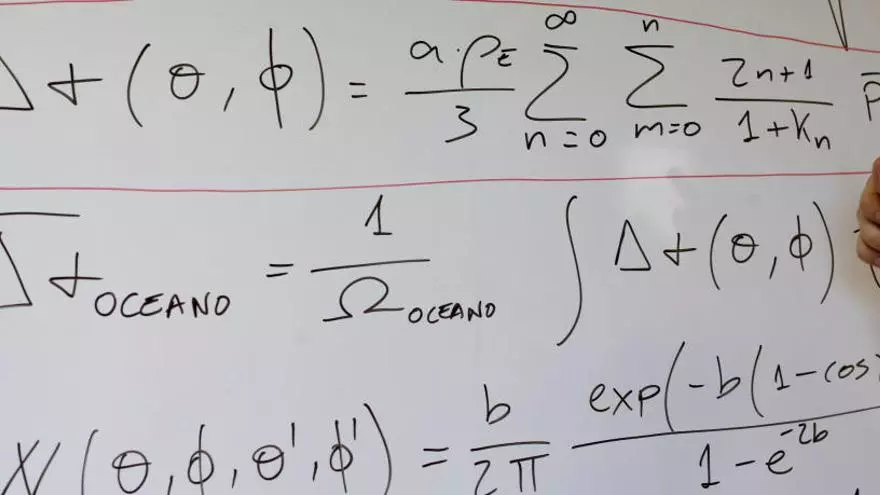 Δ+(θ,ϕ) = a·ρ_E/3 ∑_{n=0}^{∞} ∑_{m=0}^{n} 2n+1/1+K_n P̅
Δ̅+_OCEANO = 1/Ω_OCEANO ∫ Δ+(θ,ϕ)
W(θ,ϕ,θ',ϕ') = b/2π exp(-b(1-cos/1-e^{-2b}